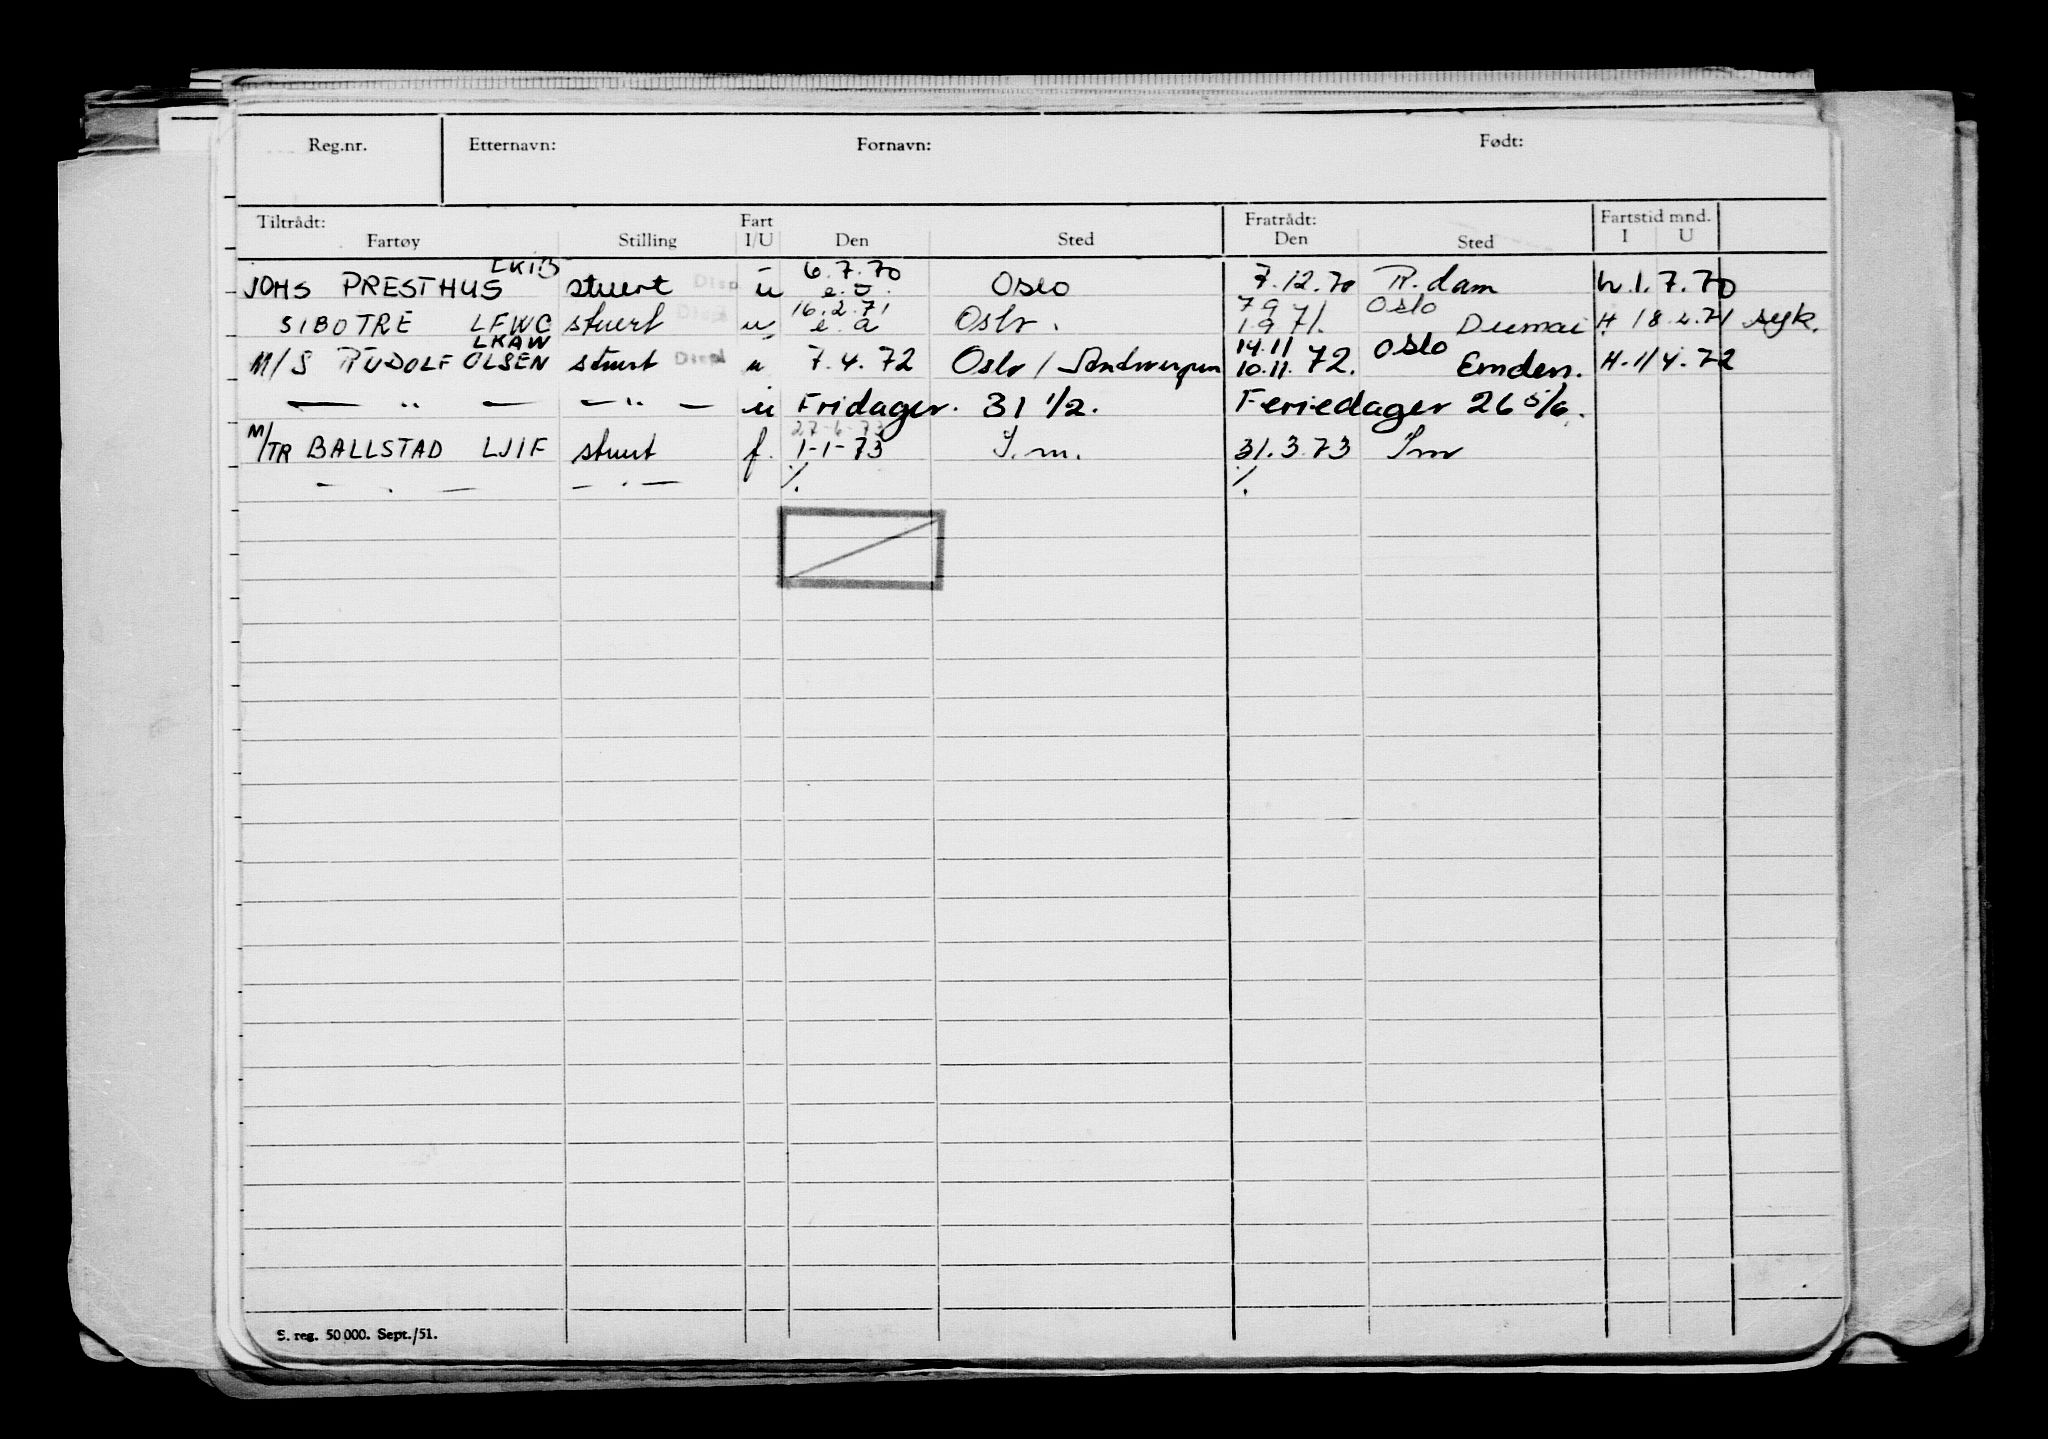 Reg.nr. Etternavn: Fornavn: Født:
Tiltrådt: Fart Fratrådt: Fartstid mnd.
Fartøy Stilling I/U Den Sted Den Sted I U
LKIB 6.7.70
JOHS PRESTHUS stuert Disp u Oslo 7.12.70 R.dam h.1.7.70
16.2.71 7 9 Oslo
SIBOTRE LFWC stuert Disp u e.a Oslo. 1 9 71. Dumai H 18.2.71 syk.
LKAW 14.11 Oslo
M/S RUDOLF OLSEN stuert Disp u 7.4.72 Oslo / Andwerpen 10.11.72. Emden. H.1/4.72
— " — — " — u Fridager. 31 1/2. Feriedager 26 5/6.
27-6-73
M/TR BALLSTAD LJIF stuert f. 1-1-73 I.m. 31.3.73 Im
— . — — . — %. %.
S. reg. 50 000. Sept./51.